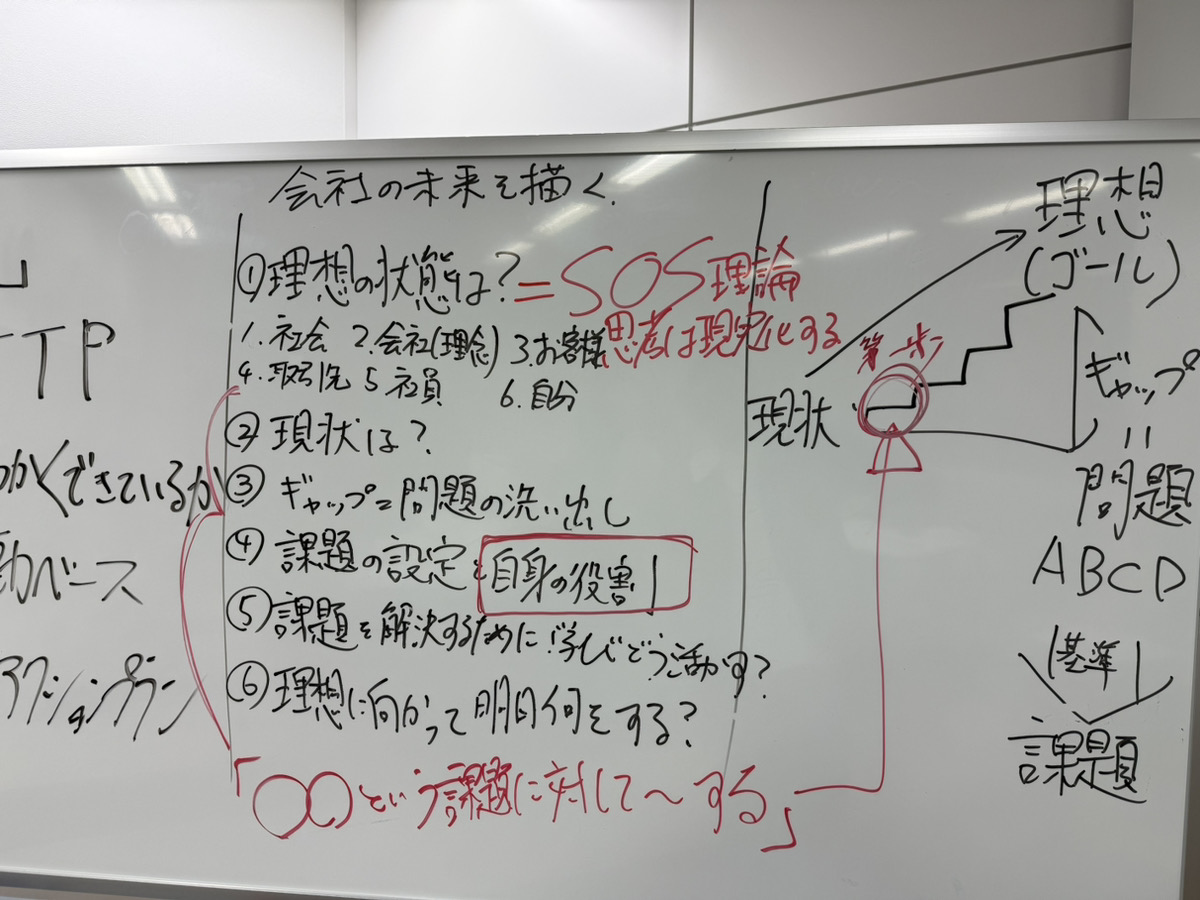 TTP
かくできているか
動ベース
アクションプラン
会社の未来を描く.
①理想の状態は?=SOS理論
思考は現実化する
1.社会 2.会社(理念) 3.お客様
4.取引先 5 社員 6.自分
②現状は?
③ギャップ=問題の洗い出し
④課題の設定と自身の役割
⑤課題を解決するために「学び」どう活かす?
⑥理想に向かって明日何をする?
「〇〇という課題に対して〜する」
理想
(ゴール)
第一歩
現状
ギャップ
=
問題
ABCD
基準
課題